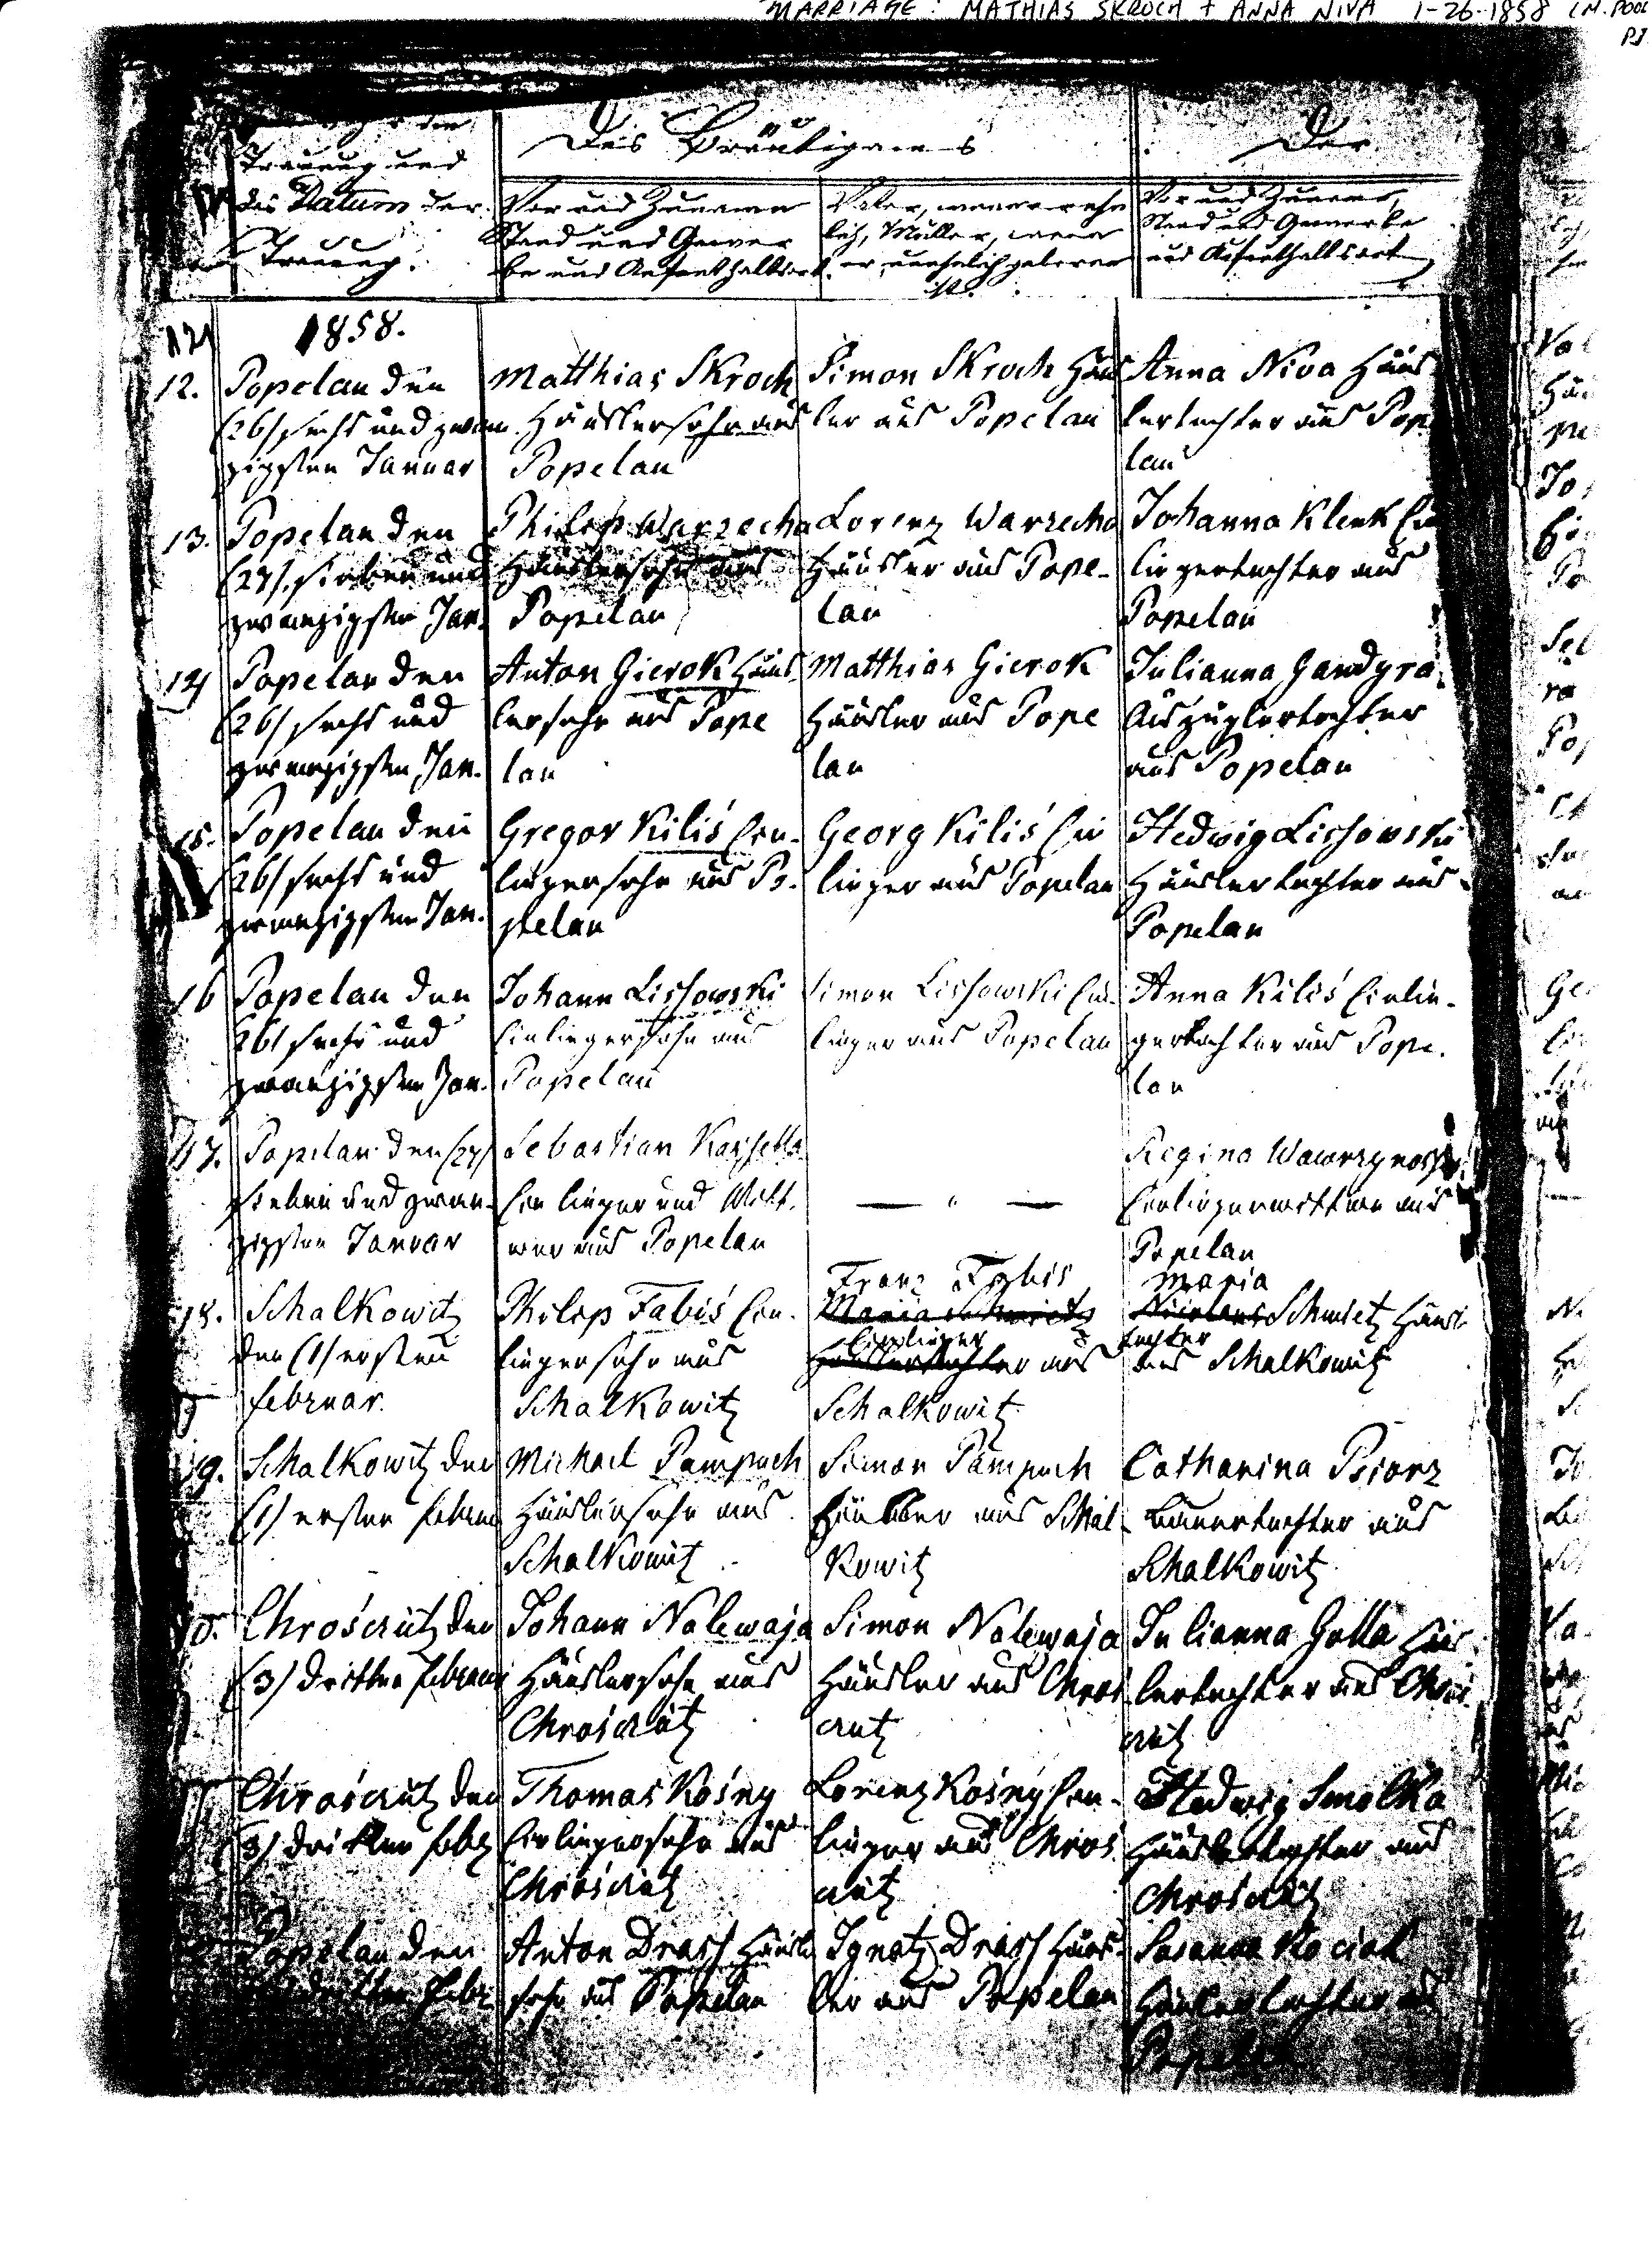 MARRIAGE: MATHIAS SKROCH + ANNA NIVA 1-26-1858
Trauung und
des Datum der
Trauung.
Des Bräutigams
Vor und Zuname
Stand und Gewer
be und Aufenthaltsort.
Vater, wenn er ehe
lich, Mutter, wenn
er unehelich geboren
ist.
Der
Vor und Zuname,
Stand und Gewerbe
und Aufenthaltsort
1858.
12.
Popelau den
(26) sechs und zwan
zigsten Januar
Matthias Skroch
Häuslersohn aus
Popelau
Simon Skroch Häus
ler aus Popelau
Anna Niva Häus
lertochter aus Pope
lau
13.
Popelau den
(27) sieben und
zwanzigsten Jan.
Philip Warzecha
Häuslersohn aus
Popelau
Lorenz Warzecha
Häusler aus Pope-
lau
Johanna Klenk Ein
liegertochter aus
Popelau
14
Popelau den
(26) sechs und
zwanzigsten Jan.
Anton Gierok Häus
lersohn aus Pope
lau
Matthias Gierok
Häusler aus Pope
lau
Julianna Gandyra
Auszüglertochter
aus Popelau
15.
Popelau den
(26) sechs und
zwanzigsten Jan.
Gregor Kiliś Ein-
liegersohn aus Po-
pelau
Georg Kiliś Ein
lieger aus Popelau
Hedwig Lissowski
Häuslertochter aus
Popelau
16
Popelau den
(26) sechs und
zwanzigsten Jan.
Johann Lissowski
Einliegersohn aus
Popelau
Simon Lissowski Ein-
lieger aus Popelau
Anna Kiliś Einlie-
gertochter aus Pope-
lau
17.
Popelau den (27)
sieben und zwan-
zigsten Januar
Sebastian
Einlieger und Witt-
wer aus Popelau
— " —
Regina
Einliegerwittwe aus
Popelau
18.
Schalkowitz
den (1) ersten
Februar.
Philip Fabiś Ein-
liegersohn aus
Schalkowitz
Franz Fabis
Maria Schmietz
Einlieger
Häuslertochter aus
Schalkowitz
Maria
Schmietz Häusl
tochter
aus Schalkowitz
19.
Schalkowitz den
(1) ersten Februar
Michael Pampuch
Häuslersohn aus
Schalkowitz
Simon Pampuch
Häusler aus Schal-
kowitz
Catharina Psiorz
Bauertochter aus
Schalkowitz
Chrościütz den
(3) dritten Februar
Johann Nalewaja
Häuslersohn aus
Chrościütz
Simon Nalewaja
Häusler aus Chroś
ciütz
Julianna Golla Häus
lertochter aus Chroś
ciütz
Chrościütz den
(3) dritten Febr
Thomas Kośny
Einliegersohn aus
Chrościütz
Lorenz Kośny Ein-
lieger aus Chroś
ciütz
Hedwig Smolka
Häuslertochter aus
Chrościütz
Popelau den
dritten Febr
Anton Drass Häusl
sohn aus Popelau
Ignatz Drass Häus-
ler aus Popelau
Susanna Kociok
Häuslertochter aus
Popelau